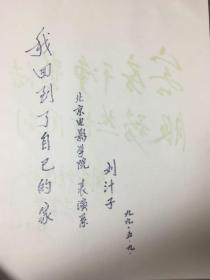 我回到了自己的家
北京电影学院 表演系
刘汁子
九九.五.九.